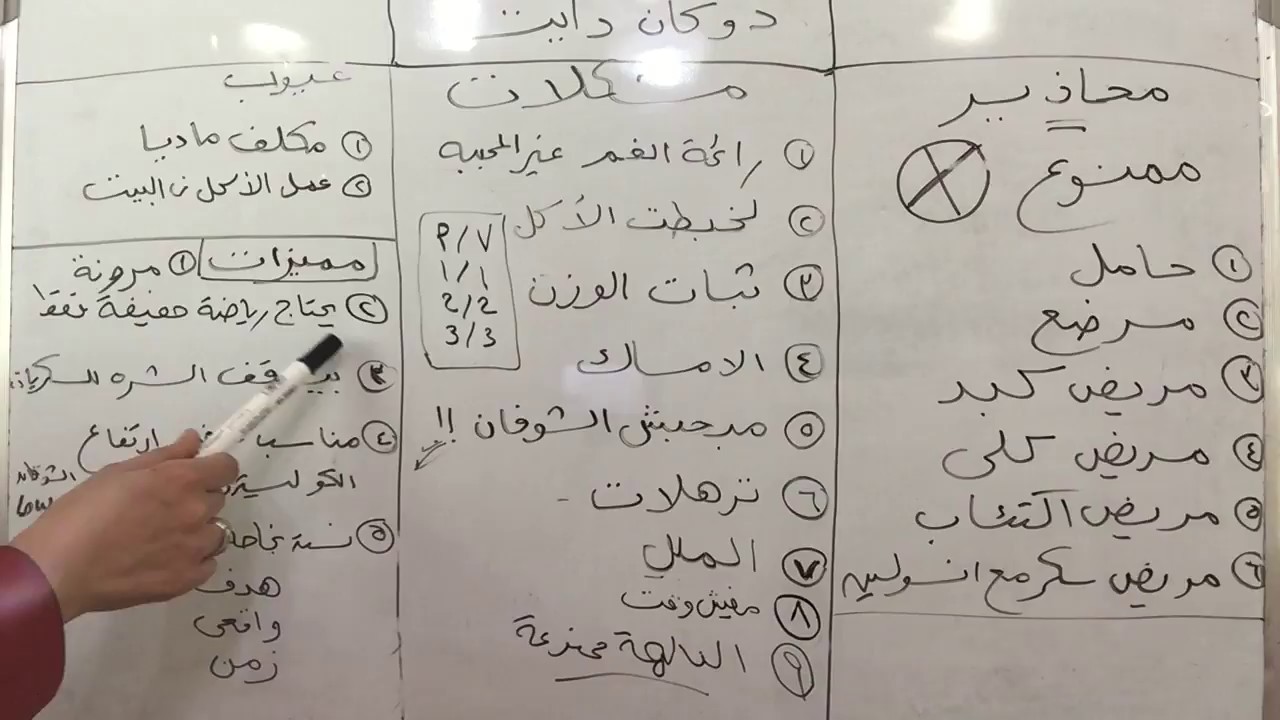 دوكان دايت
محاذير
ممنوع
١ حامل
٢ مرضع
٣ مريض كبد
٤ مريض كلى
٥ مريض اكتئاب
٦ مريض سكر مع انسولين
مشكلات
١ رائحة الفم غير المحببه
٢ لخبطت الأكل
٣ ثبات الوزن
٤ الامساك
٥ مبحبش الشوفان !!
٦ ترهلات -
٧ الملل
٨ مفيش وقت
٩ الفاكهة ممنوعة
٩/٧
١/١
2/2
3/3
عيوب
١ مكلف ماديا
٢ عمل الأكل فى البيت
مميزات ١ مرونة
٢ يحتاج رياضة خفيفة فقط
٣ قف الشره للسكريات
٤ مناسب ارتفاع
الشوفان
low
٥ نسبة نجاح
هدف
واقعى
زمن